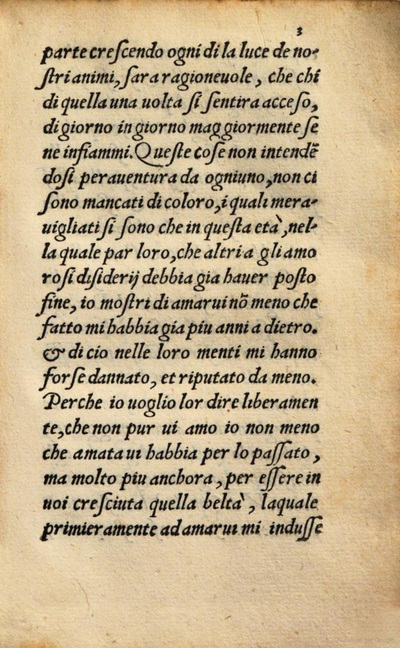 3
parte creſcendo ogni di la luce de no-
ſtri animi, ſara ragioneuole, che chi
di quella una uolta ſi ſentira acceſo,
di giorno in giorno maggiormente ſe
ne infiammi. Queſte coſe non intendẽ
doſi perauentura da ogniuno, non ci
ſono mancati di coloro, i quali mera-
uigliati ſi ſono che in queſta età, nel-
la quale par loro, che altri a gli amo
roſi diſiderij debbia gia hauer poſto
fine, io moſtri di amarui nõ meno che
fatto mi habbia gia piu anni a dietro.
& di cio nelle loro menti mi hanno
forſe dannato, et riputato da meno.
Perche io uoglio lor dire liberamen
te, che non pur ui amo io non meno
che amata ui habbia per lo paſſato,
ma molto piu anchora, per eſſere in
uoi creſciuta quella beltà, laquale
primieramente ad amarui mi induſſe